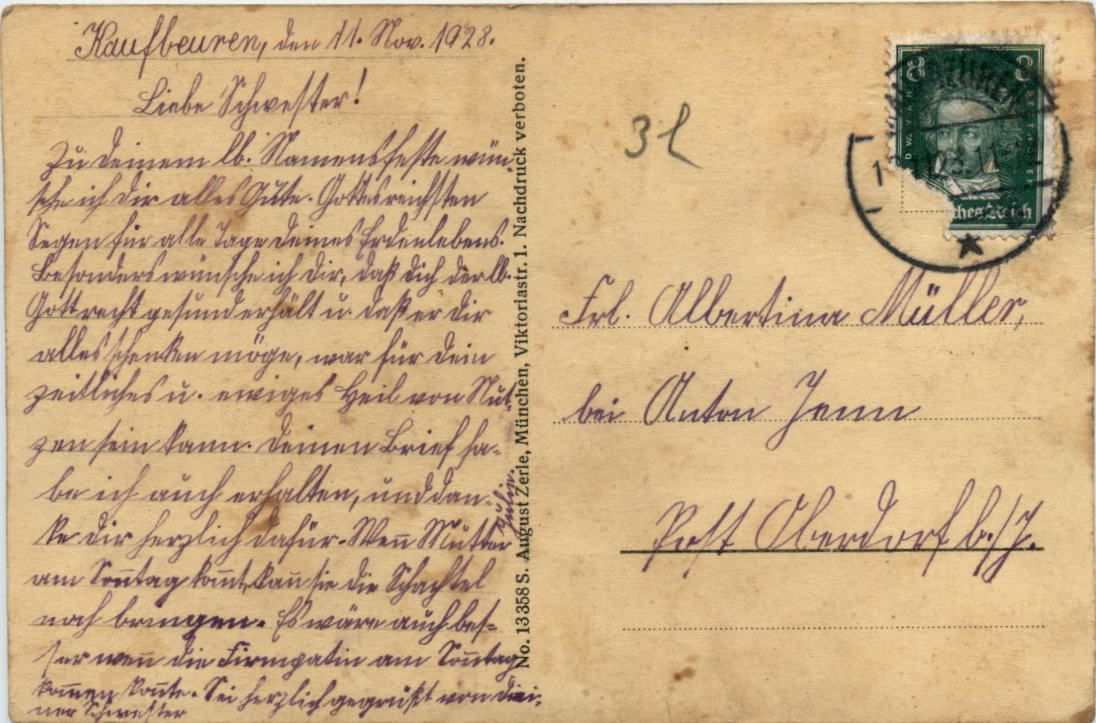 Kaufbeuren, den 11. Nov. 1928.
Liebe Schwester!
Zu deinem lb. Namensfeste wün-
sche ich dir alles Gute. Gottes reichsten
Segen für alle Tage deines Erdenlebens.
Besonders wünsche ich dir, daß dich der lb.
Gott recht gesund erhält u. daß er dir
alles schenken möge, was für dein
zeitliches u. ewiges Heil von Nut-
zen sein kann. Deinen Brief ha-
be ich auch erhalten, und dan-
ke dir herzlich dafür. Wen̄ Mutter
am Son̄tag kom̄t, kan̄ sie die Schachtel
noch bringen. Es wäre auch bes-
ser wen̄ die Firmpatin am Son̄tag
kom̄en kön̄te. Sei herzlich gegrüßt von dei-
ner Schwester
Julie.
No. 13358 S. August Zerle, München, Viktoriastr. 1. Nachdruck verboten.
3 l
8 8
ches Reich
Frl. Albertina Müller,
bei Anton Jenn
Post Oberdorf b./J.